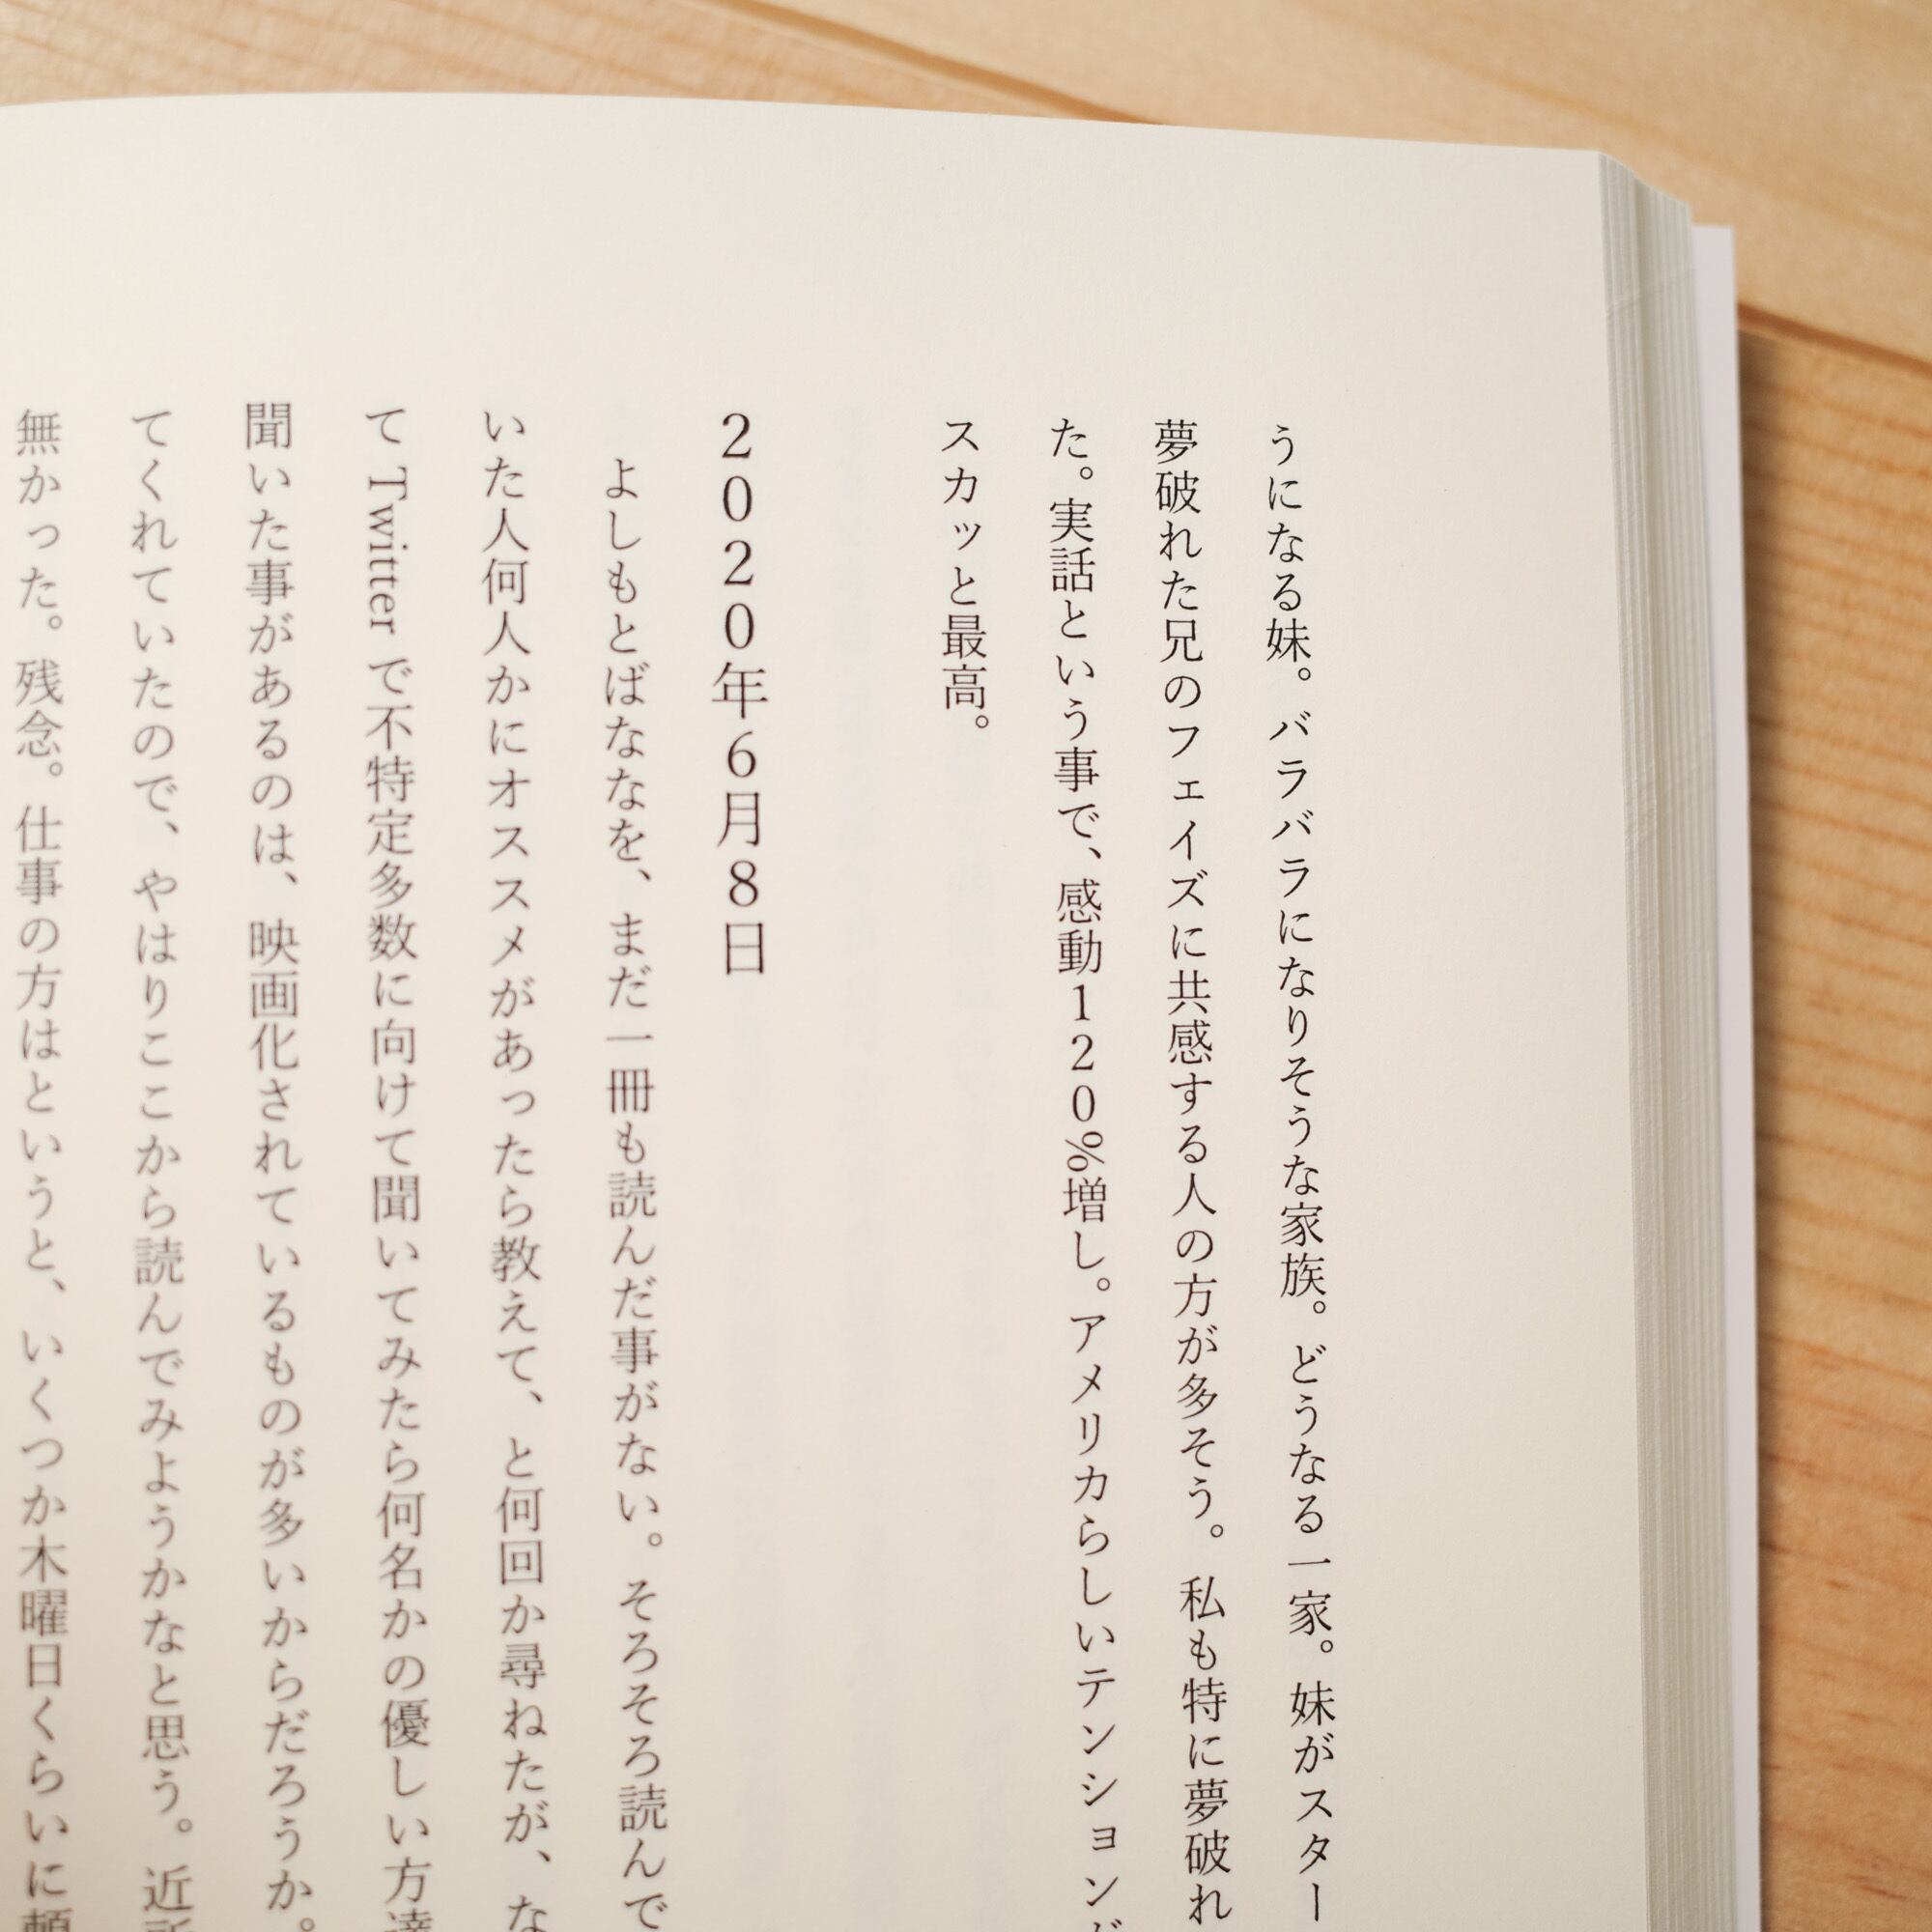 うになる妹。バラバラになりそうな家族。どうなる一家。妹がスター
夢破れた兄のフェイズに共感する人の方が多そう。私も特に夢破れ
た。実話という事で、感動120%増し。アメリカらしいテンション
スカッと最高。
2020年6月8日
よしもとばななを、まだ一冊も読んだ事がない。そろそろ読んで
いた人何人かにオススメがあったら教えて、と何回か尋ねたが、な
て Twitter で不特定多数に向けて聞いてみたら何名かの優しい方達
聞いた事があるのは、映画化されているものが多いからだろうか。
てくれていたので、やはりここから読んでみようかなと思う。近所
無かった。残念。仕事の方はというと、いくつか木曜日くらいに頼